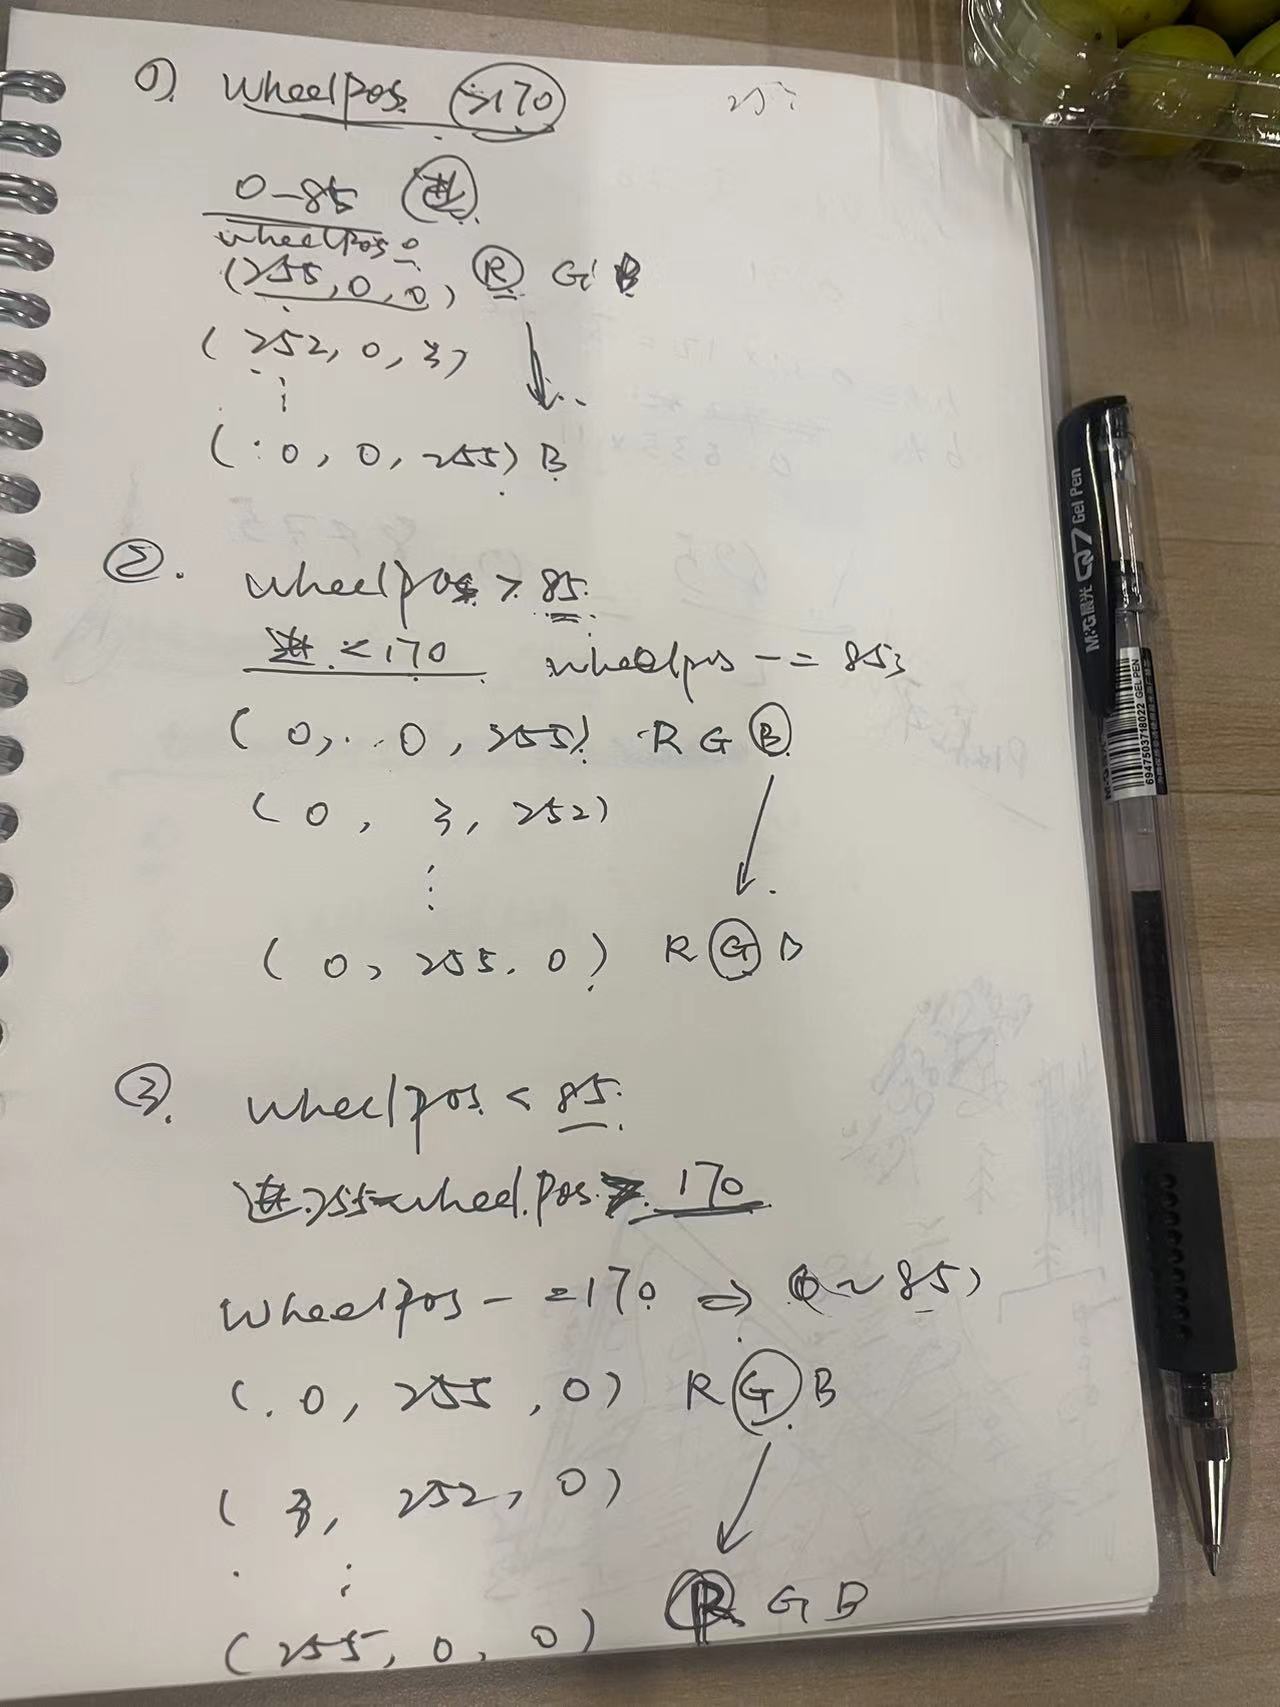 ① wheelPos >170
255
0-85 进
wheelPos 0
(255,0,0) R G B
(252,0,3)
⋮
(0,0,255) B
②. wheelpos > 85.
进 <170 wheelpos -= 85;
(0, 0, 255) R G B
(0, 3, 252)
⋮
(0, 255, 0) R G B
③. wheelpos < 85.
进 255-wheelPos > 170
wheelPos -=170 ⇒ 0~85)
(0, 255, 0) R G B
(3, 252, 0)
⋮
(255, 0, 0) R G B
M&G晨光 Q7 Gel Pen
GEL PEN
6947503718022